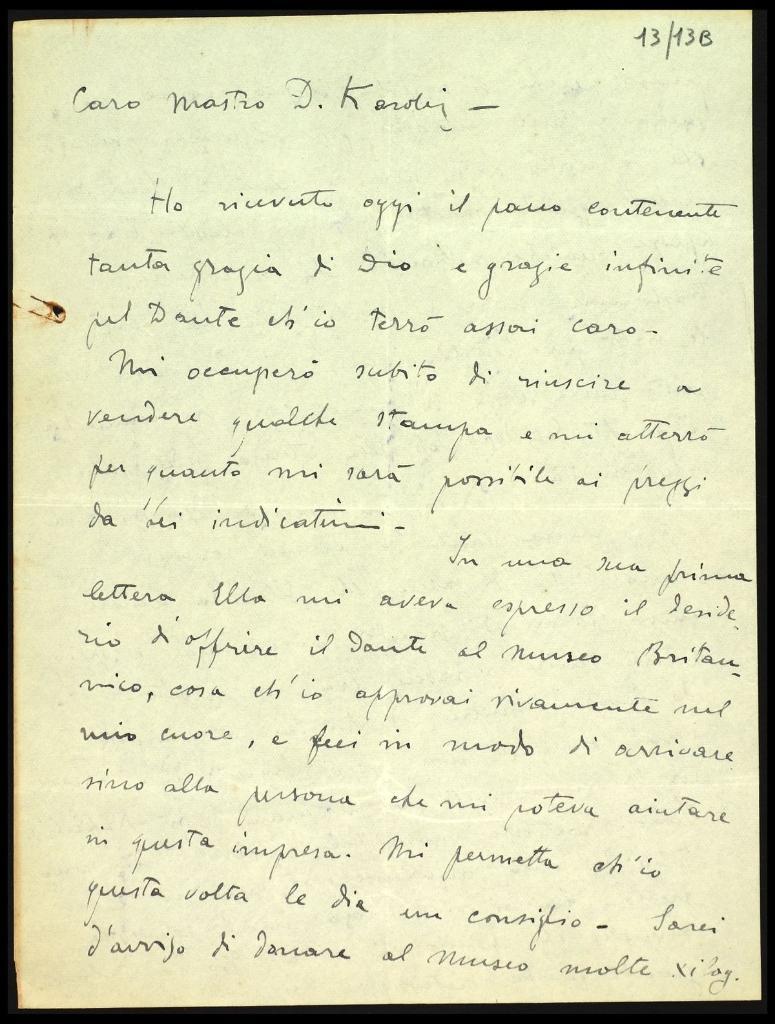 13/13B
Caro Mastro D. Karolis —
Ho ricevuto oggi il pacco contenente
tanta grazia di Dio e grazie infinite
pel Dante ch'io terrò assai caro —
Mi occuperò subito di riuscire a
vendere qualche stampa e mi atterrò
per quanto mi sarà possibile ai prezzi
da lei indicatimi —
In una sua prima
lettera Ella mi aveva espresso il deside-
rio d'offrire il Dante al museo Britan-
nico, cosa ch'io approvai vivamente nel
mio cuore, e feci in modo di arrivare
sino alla persona che mi poteva aiutare
in questa impresa. Mi permetta ch'io
questa volta le dia un consiglio — Sarei
d'avviso di donare al museo molte xilog.